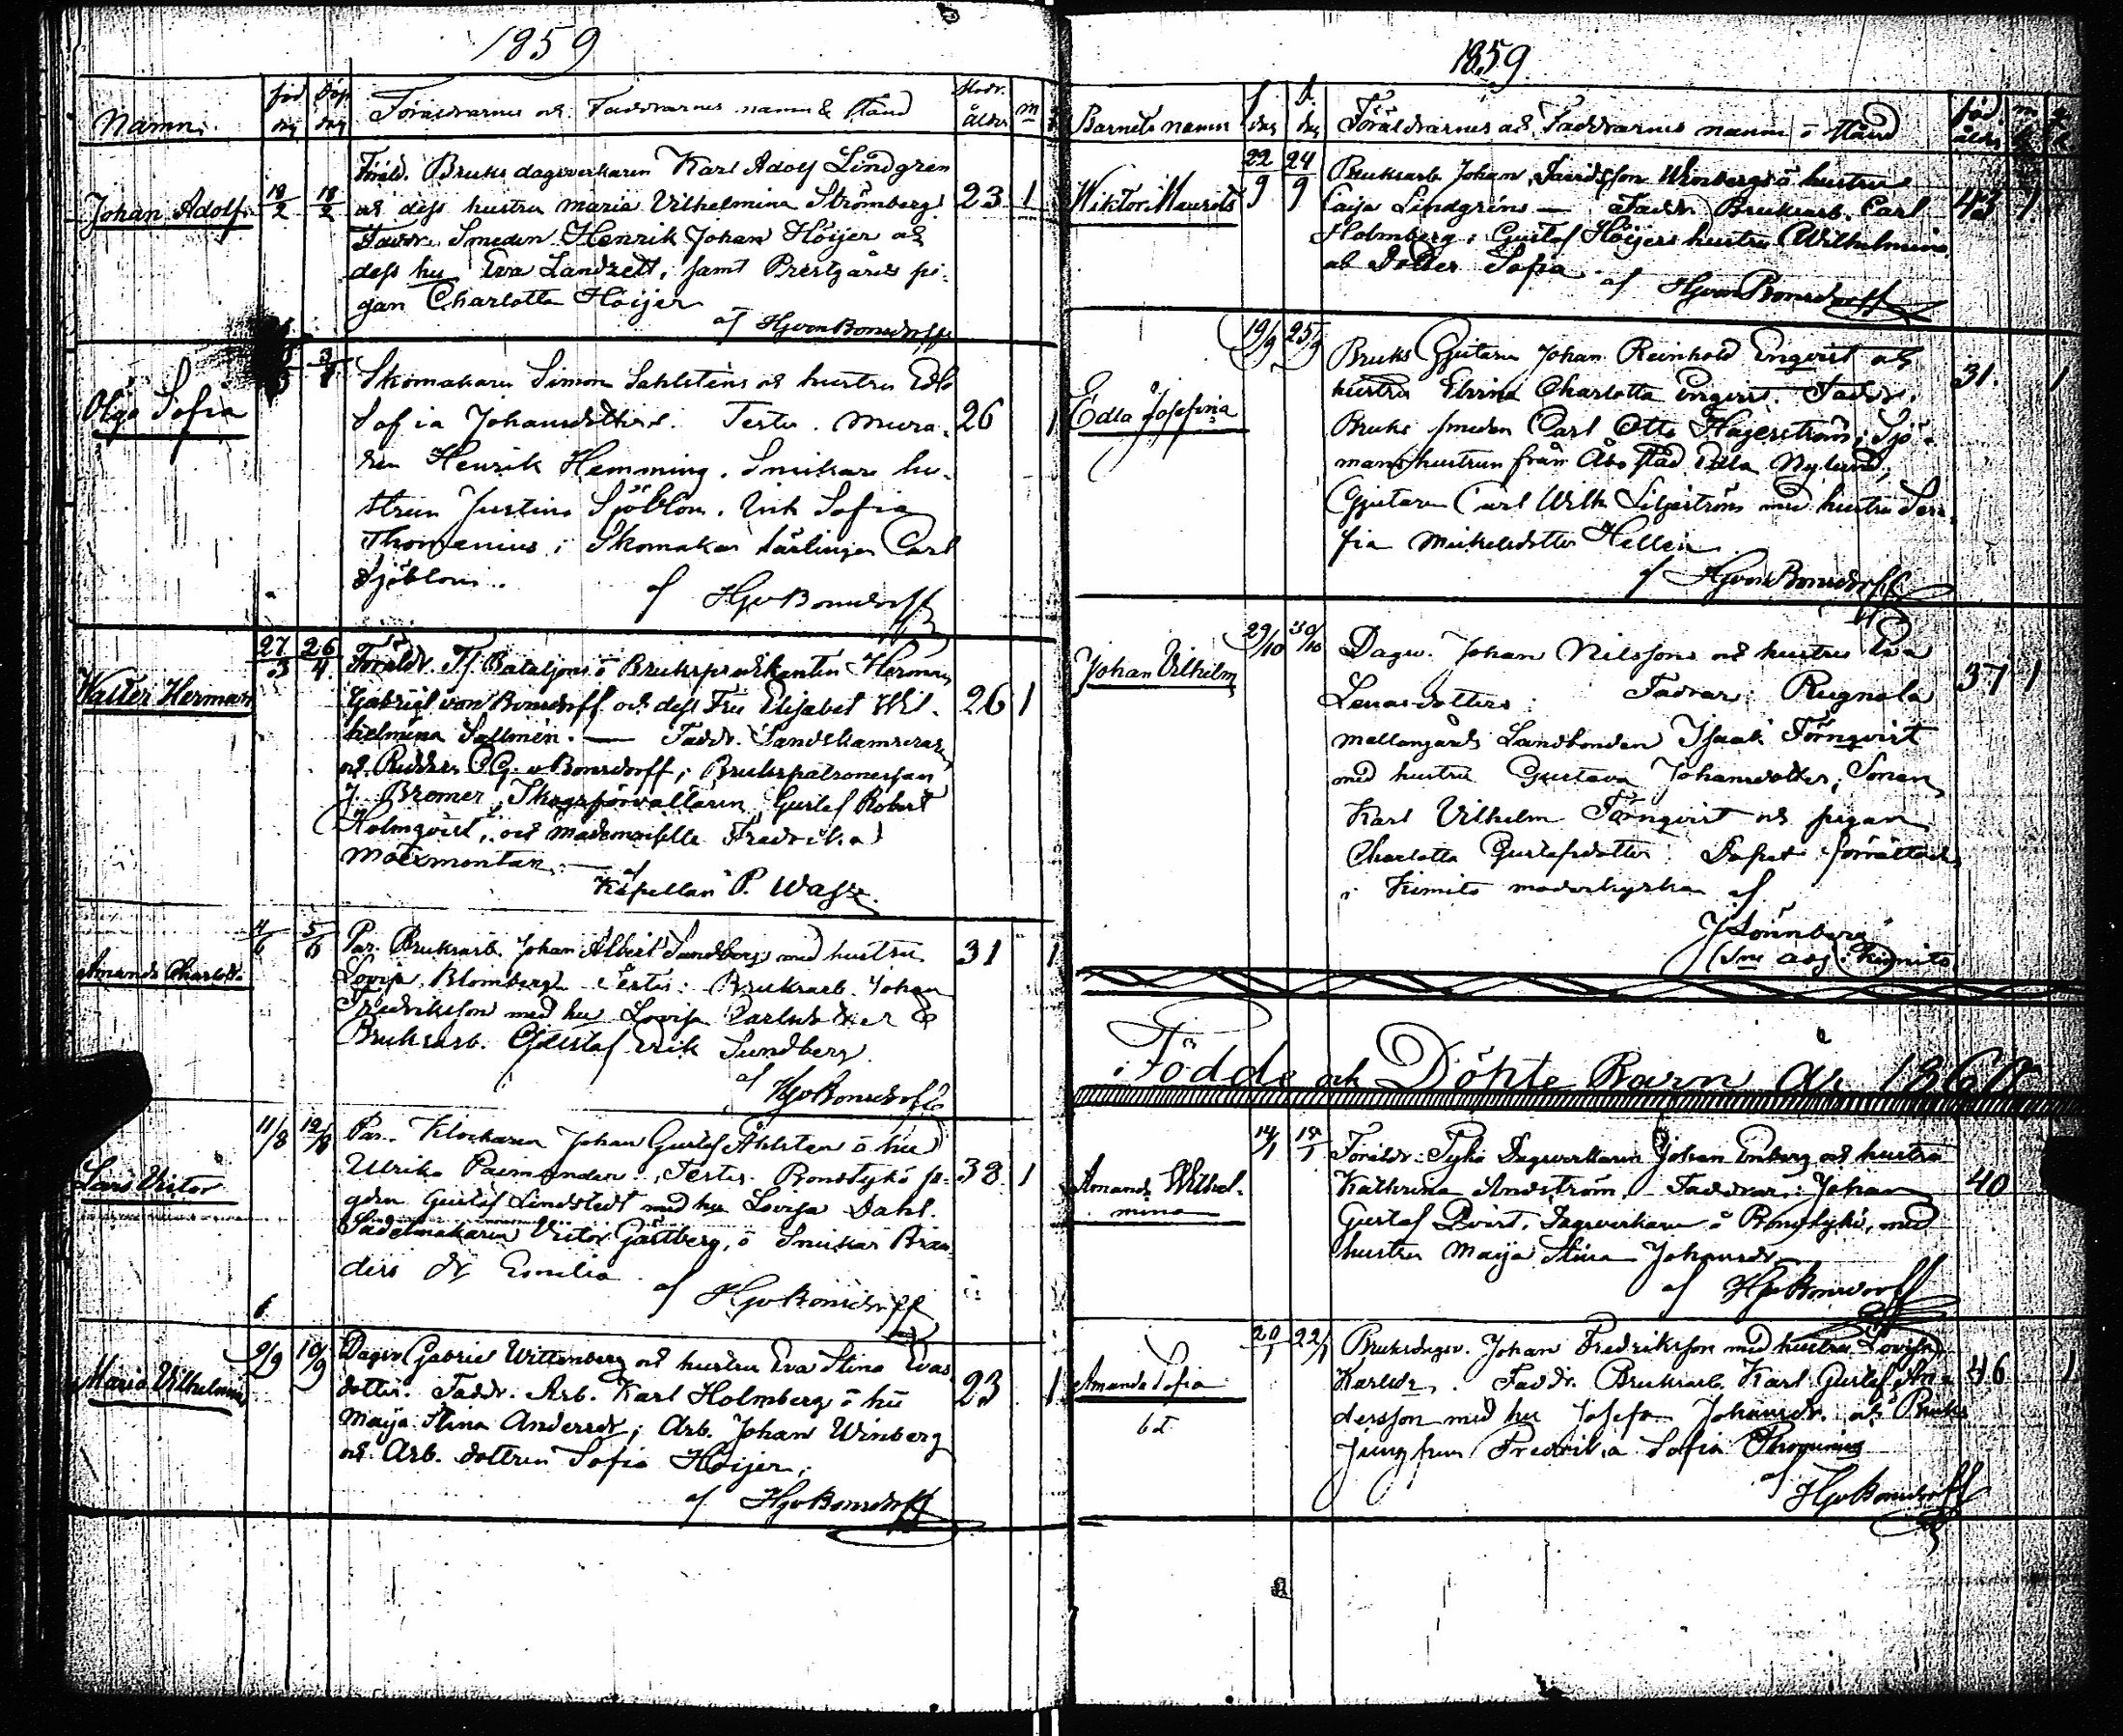 1859
Namn
föd dag
Döp dag
Föräldrarnes och Faddrarnes namn & Stånd
Modr. ålder
m
Johan Adolf
18/2
18/2
Föräld. Bruks dagsverkaren Karl Adolf Lindgren
och dess hustru Maria Vilhelmina Strömberg.
Faddr. Smeden Henrik Johan Höijer och
dess hu Eva Landzett, samt Prestgårds pi-
gan Charlotta Höijer
af HGvonBonsdorff
23
1
Olga Sofia
Skomakaren Simon Sahlsténs och hustru Edla
Sofia Johansdotters. Testes. Mura-
ren Henrik Hemming. Snickare hu-
strun Justina Sjöblom. Enk Sofia
Thomenius; Skomakar lärlingen Carl
Sjöblom.
af HGvBonsdorff
26
1
Walter Herman
27/3
26/4
Föräldr. Tf. Bataljons o Brukspredikanten Herman
Gabriel von Bonsdorff och dess Fru Elisabet Wil-
helmina Sallmén. — Faddr. Landskamreraren
och Ridder CG. v Bonsdorff; Brukspatronessan
J Bremer, Skogsförvaltaren Gustaf Robert
Holmqvist, och Mademoiselle Fredrika
Moexmontan. —
af
Kapellan P. Wasz.
26
1
Amanda Charlott.
4/6
5/6
Par. Bruksarb. Johan Albert Sundberg med hustru
Lovisa Blomberg. Testes: Bruksarb. Johan
Fredriksson med hu Lovisa Carlsdotter &
Bruksarb. Gustaf Erik Sundberg.
af HGvBonsdorff
31
1
Lars Victor
11/8
12/8
Par. Klockaren Johan Gustaf Åhlsten o hu
Ulrika Paimander. Testes. Ronstykö
Gustaf Lindstedt med hu Lovisa Dahl.
Sadelmakaren Victor Gästberg, o Snickar Bran
ders dr Emilia
af HGvBonsdorff
38
1
Maria Vilhelmin
9/9
10/9
Dagsv Gabriel Wittenberg och hustru Eva Stina Evas
dotter. Faddr. Arb. Karl Holmberg o hu
Maija Stina Andersdr; Arb. Johan Winberg
och Arb. dottren Sofia Höijer,
af HGvBonsdorff
23
1
1859
Barnets namn
f. dag
d. dag
Föräldrarnes och Faddrarnes namn o stånd
föd. ålder
m
Wiktor Maurits
22/9
24/9
Bruksarb Johan Davidsson Winbergs o hustru
Caija Lindgréns — Faddr. Bruksarb. Carl
Holmberg; Gustaf Höijers hustru Wilhelmina
och Dotter Sofia
af HGvonBonsdorff
43
1
Edla Josefina
19/9
25/9
Bruks Gjutaren Johan Reinhold Engqvist och
hustru Charlotta Engqvist. Faddr.
Bruks smeden Carl Otto Hagerström; Sjö-
manshustrun från Åbo stad Edla Nylund;
Gjutaren Carl Wilh Liljeström med hustru
fia Mickelsdotter Hellen
af HGvonBonsdorff
31.
1
Johan Vilhelm
29/10
30/10
Dagsv. Johan Nilssons och hustru Eva
Lenasdotters. Fadrar: Rugnola
mellangårds Landbonden Isaak Törnqvist
med hustru Gustava Johansdotter; Sonen
Karl Vilhelm Törnqvist och pigan
Charlotta Gustafsdotter. Dopet förrättades
i Kimito moderkyrka af
J Lönnberg
(Sne adj. i Kimito
37
1
Födde och Döpte Barn År 1860
Amanda Wilhel-
mina
14/1
15/1
Föräldr: Tykö Dagsverkaren Johan Enberg och hustru
Kathrina Andström. Faddrar: Johan
Gustaf Qvist, Dagsverkare å med
hustru Maija Stina Johansdr
af HGvBonsdorff
40
Amanda Sofia
20/1
22/1
Bruksdagsv. Johan Fredriksson med hustru Lovisa
Karlsdr. Faddr. Bruksarb. Karl Gustaf An-
dersson med hu Josefa Johansdr. och Bruks
Jungfrun Fredrika Sofia
af HGvBonsdorff
46
1